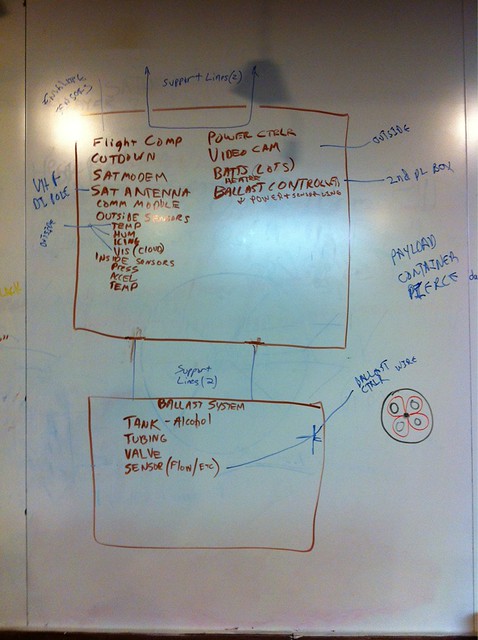 Support Lines(2)
Flight Comp
CUTDOWN
SATMODEM
SAT ANTENNA
COMM MODULE
OUTSIDE SENSORS
TEMP
HUM
ICING
VIS (CLOUD)
INSIDE SENSORS
PRESS
ACCEL
TEMP
POWER CTRLR
VIDEO CAM
BATTS (LOTS)
HEATER
BALLAST CONTROLLER
POWER + SENSOR LINE
OUTSIDE
2nd PL BOX
VHF
DI POLE
OUTSIDE
PAYLOAD
CONTAINER
PIERCE
Support
Lines(2)
BALLAST
CTRL WIRE
BALLAST SYSTEM
TANK - Alcohol
TUBING
VALVE
SENSOR (FLOW/ETC)